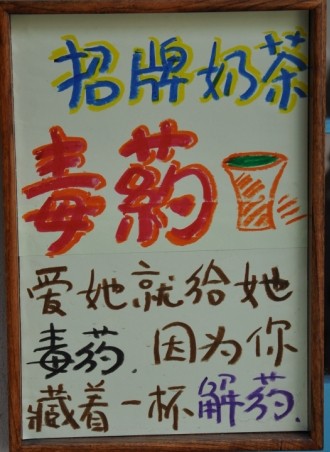 招牌奶茶
毒药
爱她就给她
毒药.因为你
藏着一杯解药.